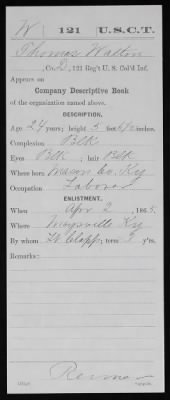 W 121 U.S.C.T.
Thomas Walton
Co. D, 121 Reg't U. S. Col'd Inf.
Appears on
Company Descriptive Book
of the organization named above.
DESCRIPTION.
Age 24 years; height 5 feet 6½ inches.
Complexion Blk
Eyes Blk; hair Blk
Where born Mason Co. Ky
Occupation Laborer
ENLISTMENT.
When Apr 2, 1865.
Where Maysville Ky
By whom Clapp; term 3 y'rs.
Remarks:
Copyist.